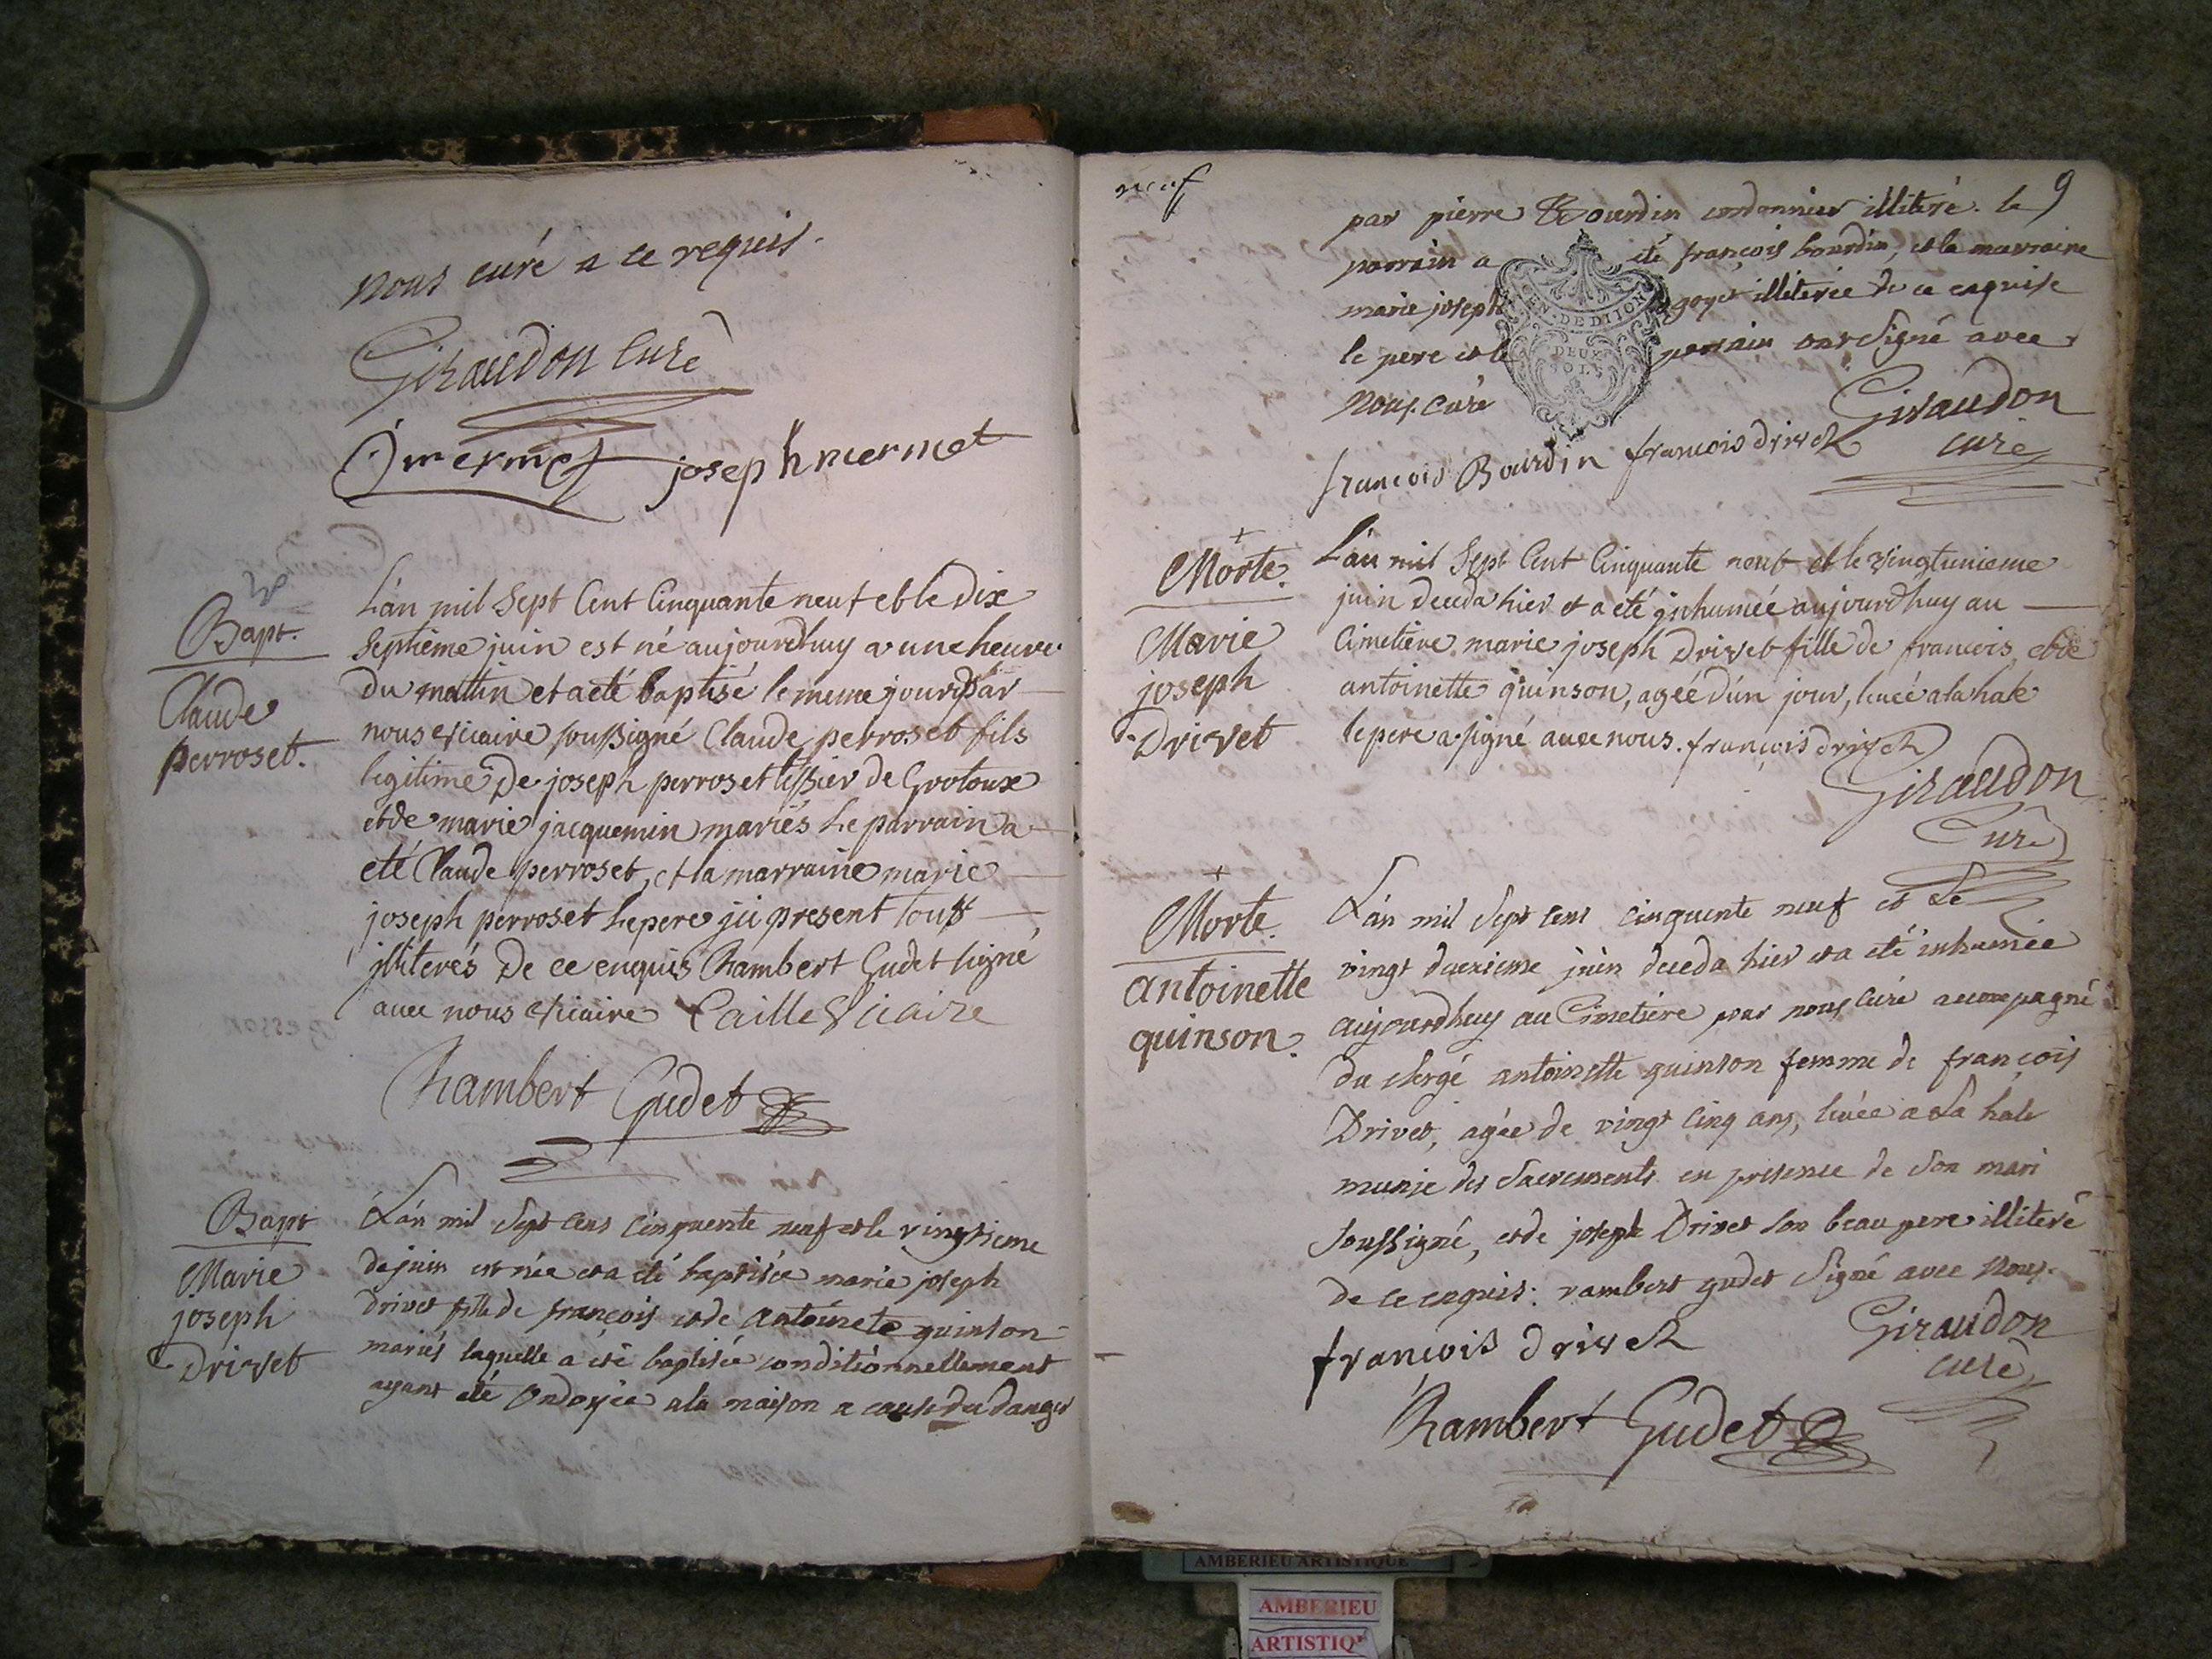 nous curé a ce requis.
Giraudon Curé
mermet joseph mermet
Bapt.
Claude
perroset.
L'an mil Sept Cent Cinquante neuf et le Dix
Septième juin est né aujourdhuy a une heure
du mattin et a eté baptisé le meme jour par
nous vicaire soussigné Claude perroset fils
legitime De joseph perroset tissier de Grotoux
et de marie jacquemin mariés le parrain a
eté Claude perroset, et la marraine marie
joseph perroset le pere ji present touts
jlliterés De ce enquis Rambert Gudet signé
avec nous vicaire Caille Vicaire
Rambert Gudet
Bapt
Marie
joseph
Drivet
L'an mil Sept cens cinquente neuf et le vingtieme
de juin est née et a eté baptisée marie joseph
drivet fille de françois et de Antoinete quinson
mariés laquelle a été baptisée conditionnellement
ayant eté Ondoyée a la maison a cause du danger
neuf
9
par pierre Bourdin cordonnier illiteré. le
parrain a eté françois bourdin, et la marraine
marie joseph goyet illiterée de ce enquise
le pere et le parrain ont Signé avec
nous Curé
GEN. DE DIJON
DEUX
SOLS
Giraudon
curé
francois Bourdin francois drivet
Morte.
Marie
joseph
Drivet
L'an mil Sept Cent Cinquante neuf et le vingtunieme
juin deceda hier et a eté jnhumée aujourdhuy au
Cimetiere marie joseph Drivet fille de francois et de
antoinette quinson, agée d'un jour, levée a la hale
le pere a signé avec nous. françois drivet
Giraudon
Curé
Morte.
antoinette
quinson.
L'an mil Sept cens cinquente neuf et Le
vingt deuxieme juin deceda hier et a eté inhumée
aujourdhuy au Cimetiere par nous Curé accompagné
du clergé antoinette quinson femme de françois
Drivet, agée de vingt cinq ans, levée a La hale
munie des Sacrements en presence de Son mari
Soussigné, et de joseph Drivet son beau pere illiteré
de ce enquis. rambert gudet Signé avec nous.
françois drivet
Giraudon
curé
Rambert Gudet
AMBERIEU ARTISTIQUE
AMBERIEU
ARTISTIQ